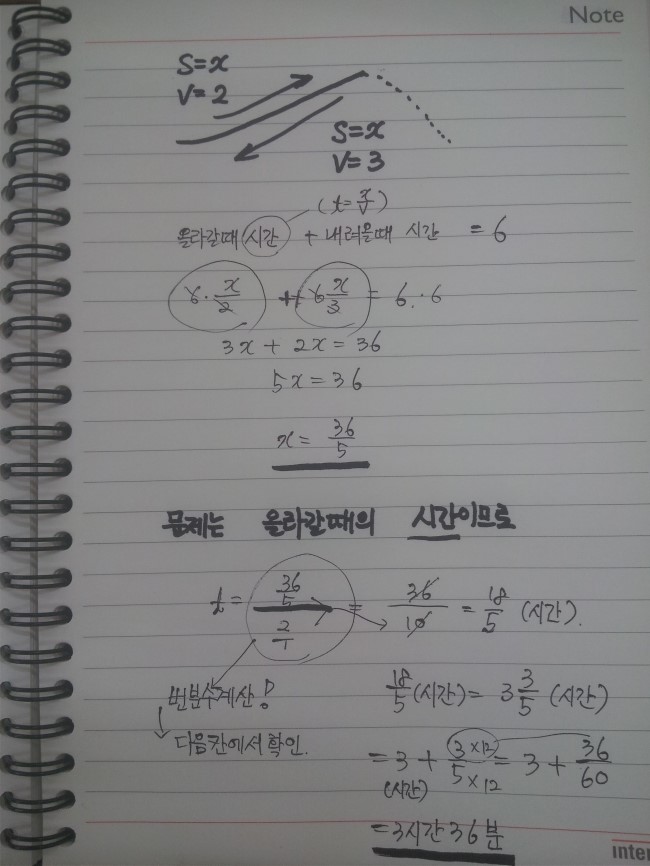 Note
S=x
V=2
S=x
V=3
(t=x/v)
올라갈때 시간 + 내려올때 시간 = 6
6·x/2 + 6 x/3 = 6·6
3x + 2x = 36
5x = 36
x = 36/5
문제는 올라갈때의 시간이므로
t = (36/5)/(2/1) = 36/10 = 18/5 (시간).
번분수계산!
다음칸에서 확인.
18/5 (시간) = 3 3/5 (시간)
= 3 + 3×12/5×12 = 3 + 36/60
(시간)
= 3시간 36분
inter